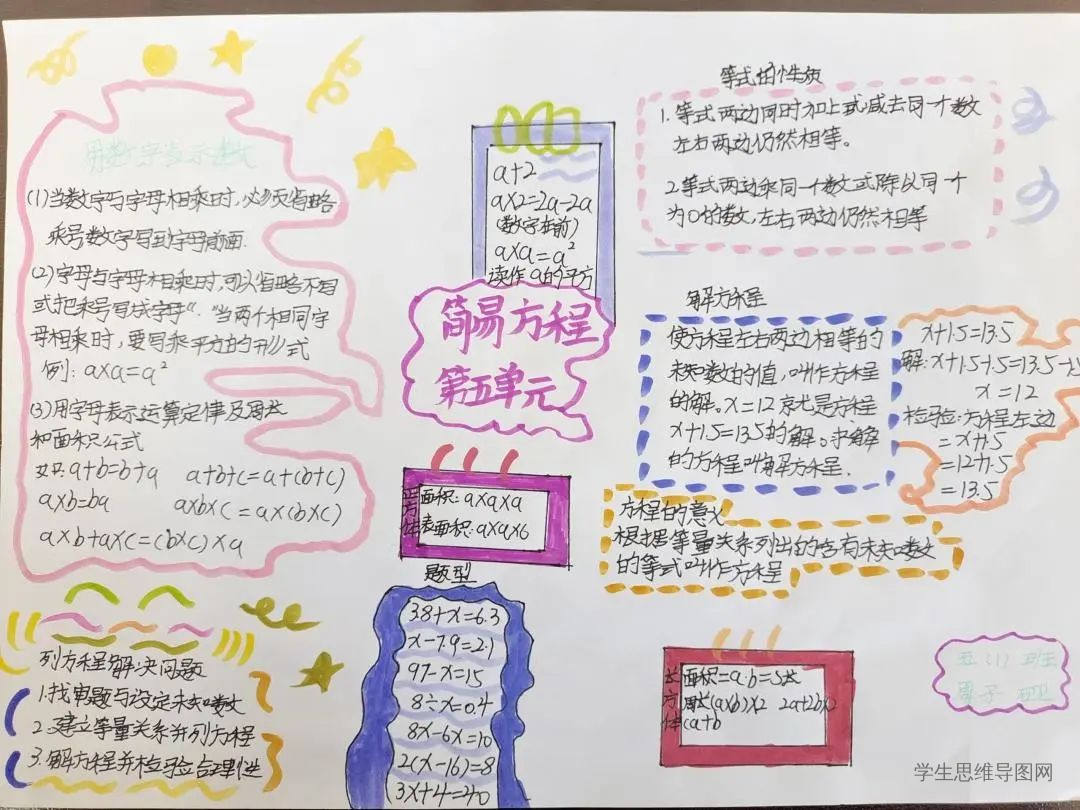 用数字表示数
(1)当数字与字母相乘时,必须省略
乘号数字写到字母前面.
(2)字母与字母相乘时,可以省略不写
式把乘号写成字母“.”当两个相同字
母相乘时,要写乘平方的形式
例:a×a=a²
(3)用字母表示运算定律及周长
和面积公式
如:a+b=b+a a+b+c=a+(b+c)
a×b=ba a×b×c=a×(b×c)
a×b+a×c=(b×c)×a
列方程解决问题
1.找审题与设定未知数
2.建立等量关系并列方程
3.解方程并检验合理性
a+2
a×2=2a-2a
(数字在前)
a×a=a²
读作a的平方
简易方程
第五单元
正方体
面积:a×a×a
表面积:a×a×6
题型
3.8+x=6.3
x-7.9=2.1
97-x=15
8÷x=0.4
8x-6x=10
2(x-16)=8
3x+4=40
等式的性质
1.等式两边同时加上或减去同一个数
左右两边仍然相等。
2.等式两边乘同一个数或除以同一个
为0的数,左右两边仍然相等
解方程
使方程左右两边相等的
未知数的值,叫作方程
的解。x=12就是方程
x+1.5=13.5的解。求解
的方程叫解方程.
x+1.5=13.5
解:x+1.5-1.5=13.5-1.5
x=12
检验:方程左边
=x+1.5
=12+1.5
=13.5
方程的意义
根据等量关系列出的含有未知数
的等式叫作方程
长方体
面积=a·b=S长
周长(a×b)×2 2a+2b×2
(a+b
五(1)班
学生思维导图网